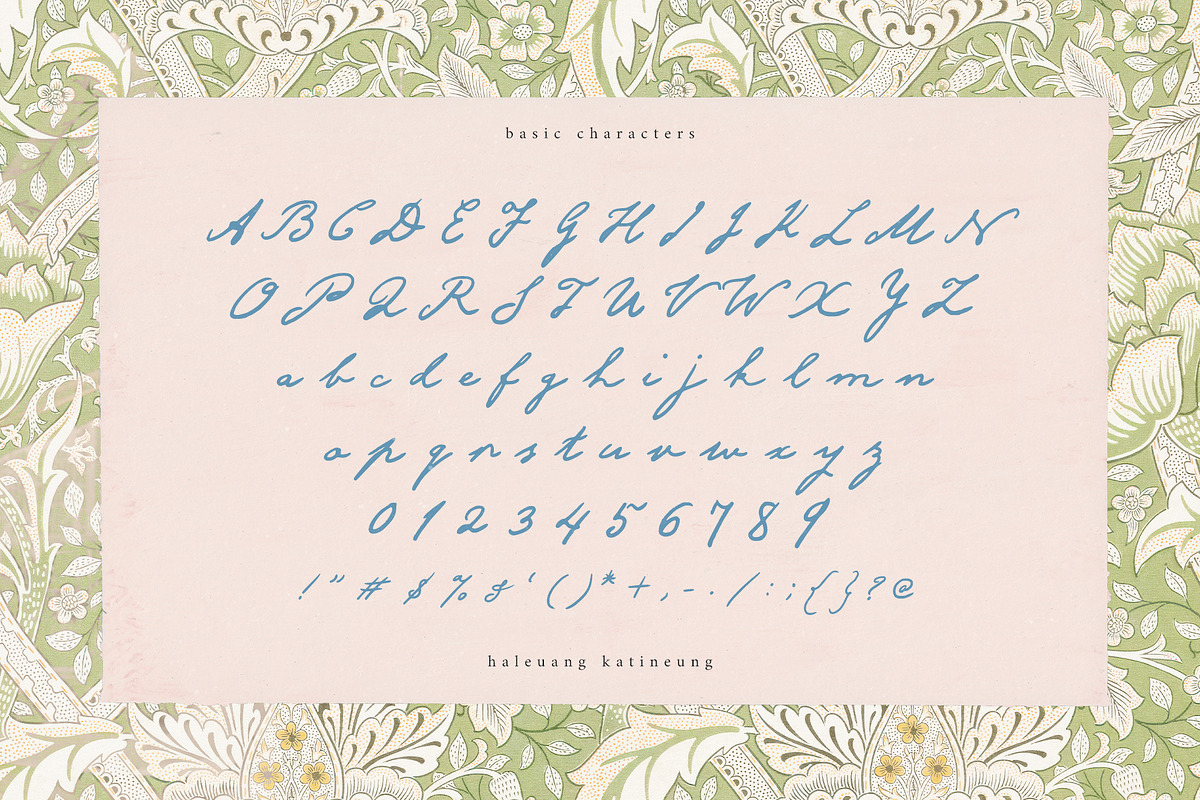 basic characters
A B C D E F G H I J K L M N
O P Q R S T U V W X Y Z
a b c d e f g h i j k l m n
o p q r s t u v w x y z
0 1 2 3 4 5 6 7 8 9
! " # $ % & ' ( ) * + , - . / : ; { } ? @
haleuang katineung